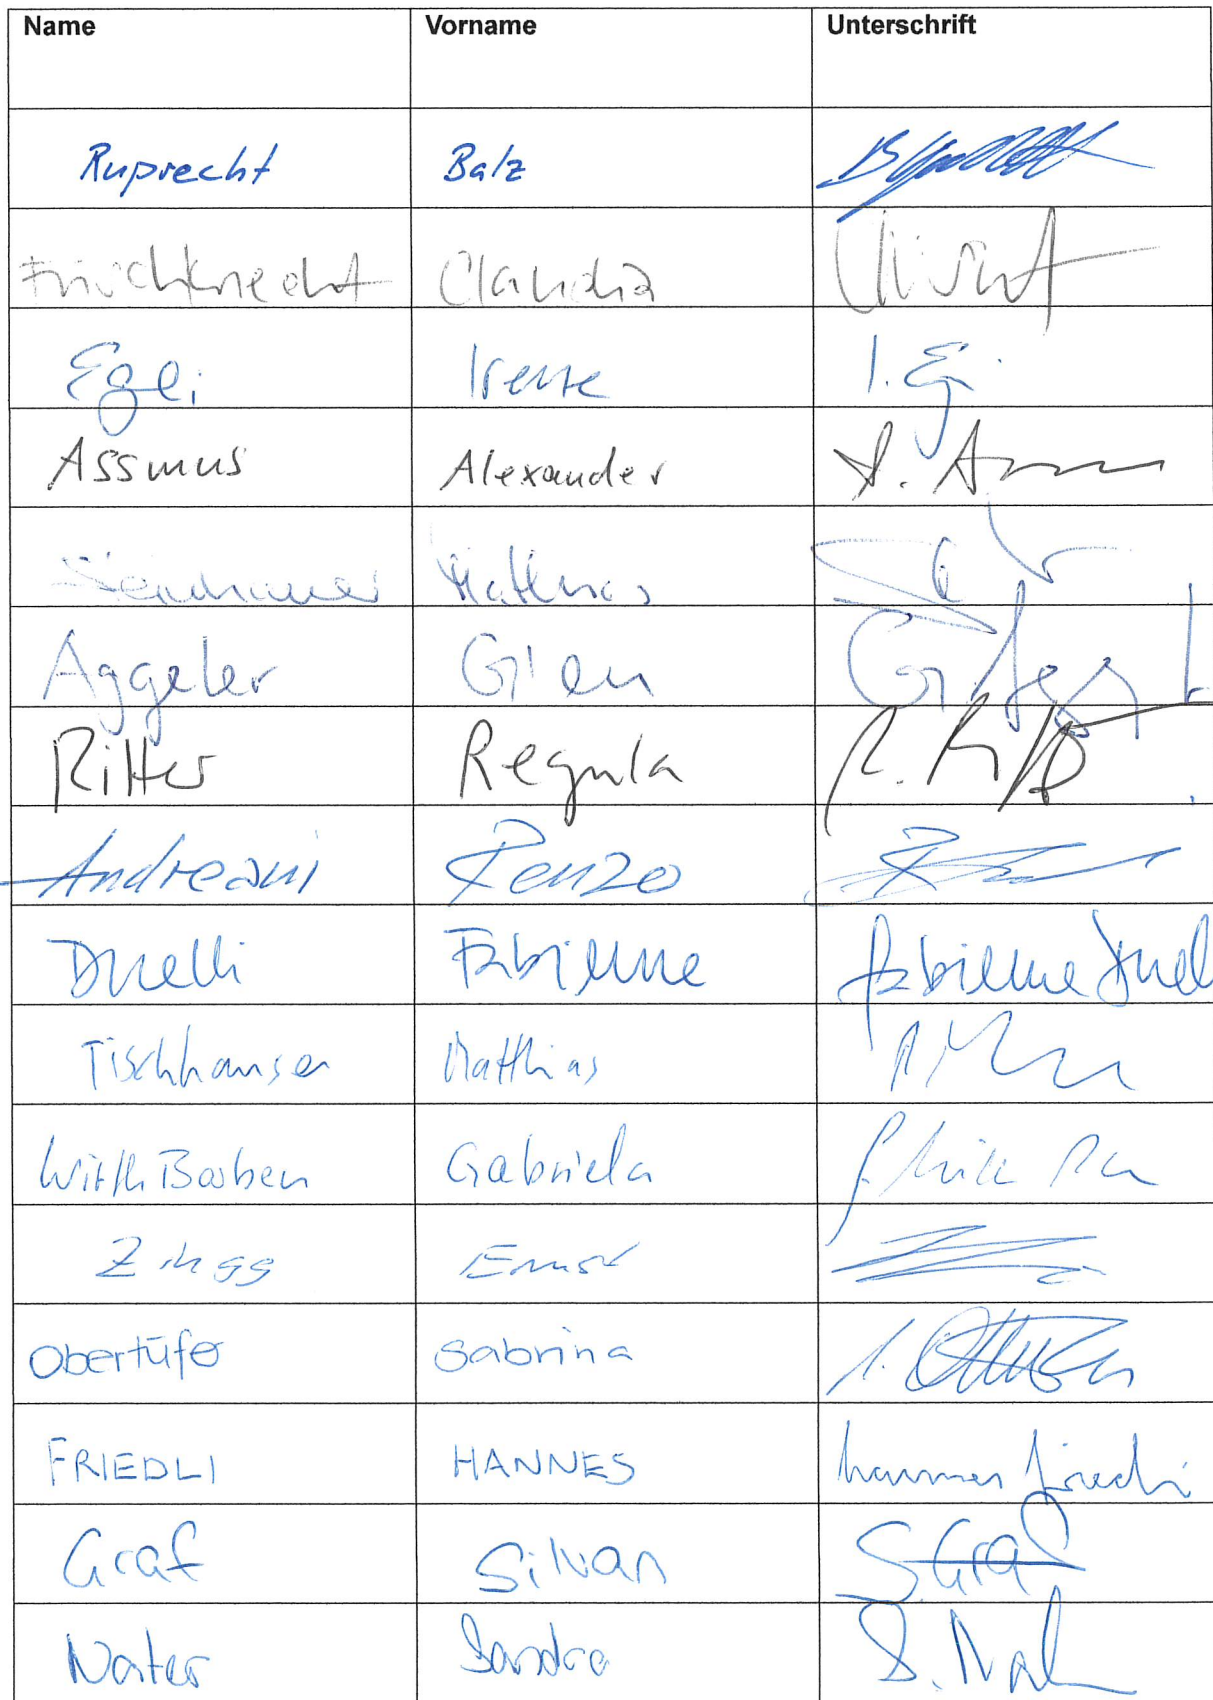 Name Vorname Unterschrift
Ruprecht Balz
Frischknecht Claudia
Egli Irene I. Egi
Assmus Alexander A. Ass
Matthias
Aggeler Gian
Ritter Regula R. Ritter
Andreani Renzo
Duelli Fabienne Fabienne Duel
Tischhauser Matthias
Wirth Barben Gabriela
Zingg Ernst
Obertüfer Sabrina
FRIEDLI HANNES hannes friedli
Graf Silvan S. Graf
Nater Sandra S. Nater